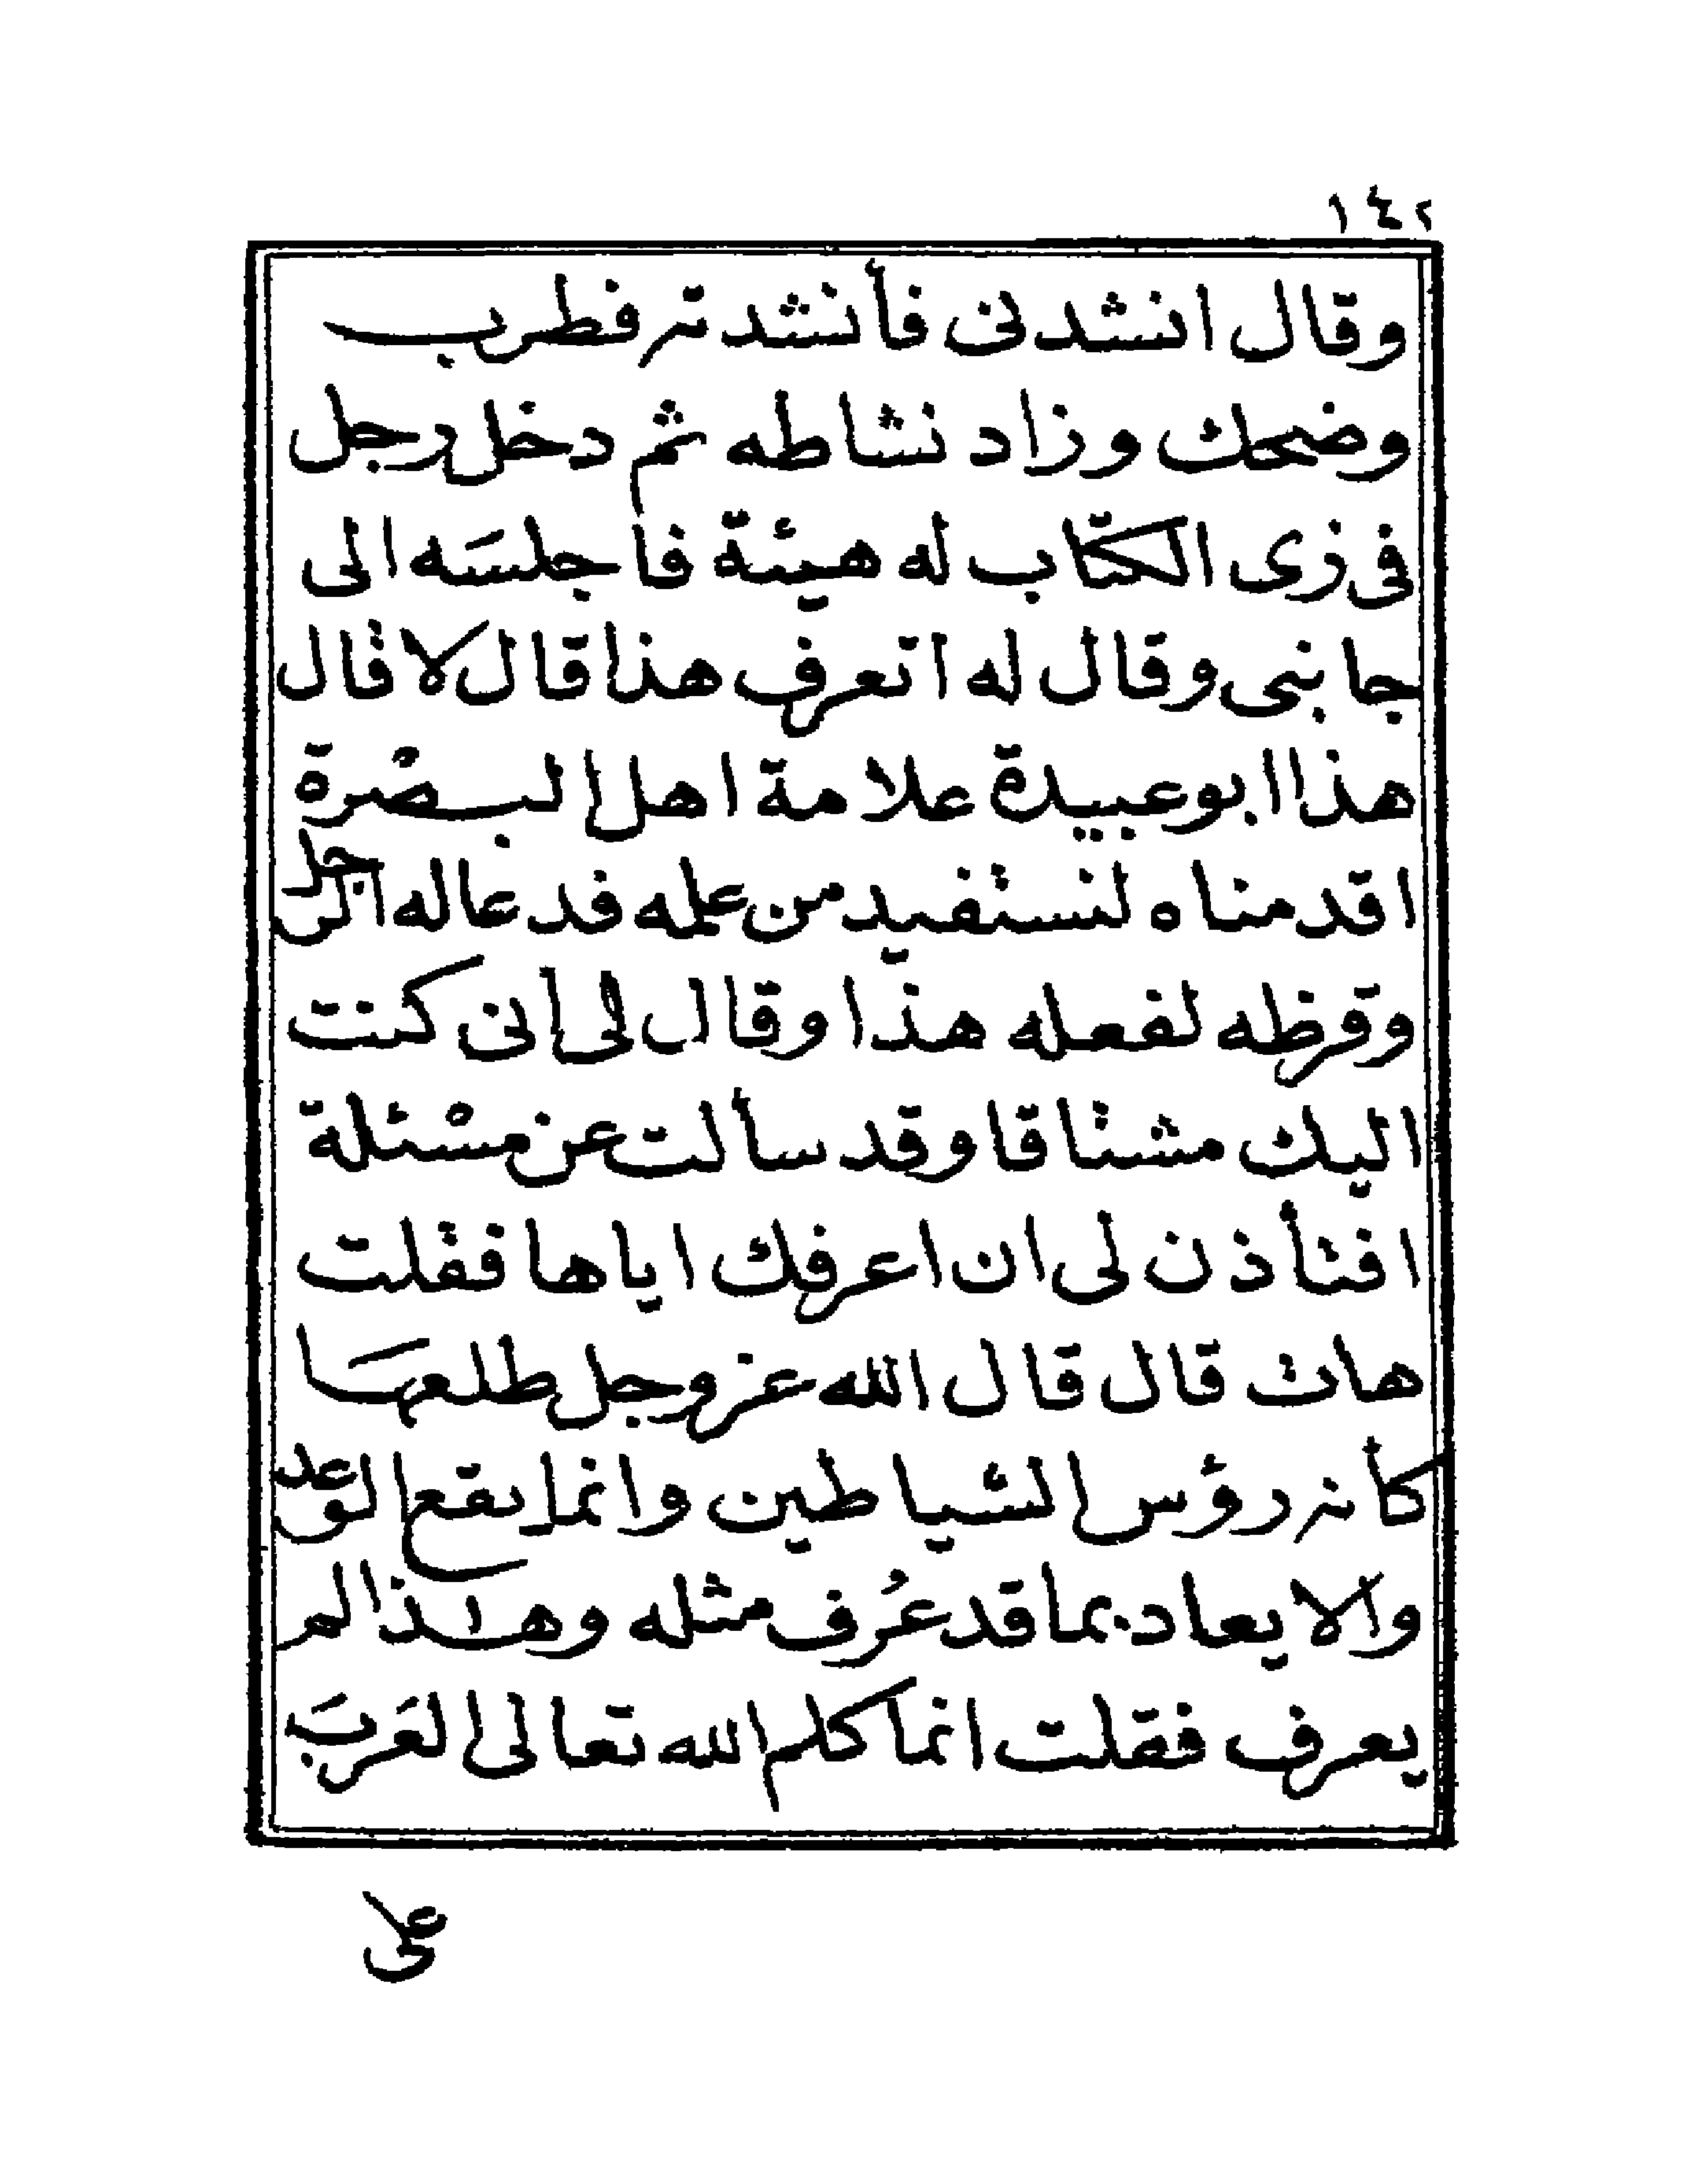 ١٤٢
وقال انشدنى فأنشدته فطرب
وضحك وزاد نشاطه ثم دخل رجل
فى زى الكتّاب له هيئة فاجلسَه الى
جانبى وقال له اتعرف هذا قال لا قال
هذا ابو عبيدة علامة اهل البصْرة
اقدمناه لنستفيد من علمه فدعا له الرجل
وقرظه لفعله هذا وقال لى انى كنت
اليك مشتاقا وقد سألت عن مسْئلة
افتأذن لى ان اعرفك اياها فقلت
هات قال قال الله عز وجل طلعهَا
كأنه رؤس الشياطين وانما يقع الوعد
والايعاد بما قد عُرف مثله وهذا لم
يعرف فقلت انما كلم الله تعالى العَربَ
على